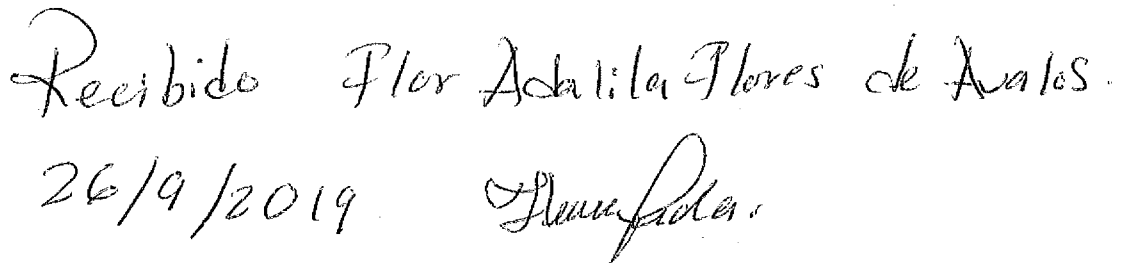 Recibido Flor Adalila Flores de Avalos.
26/9/2019